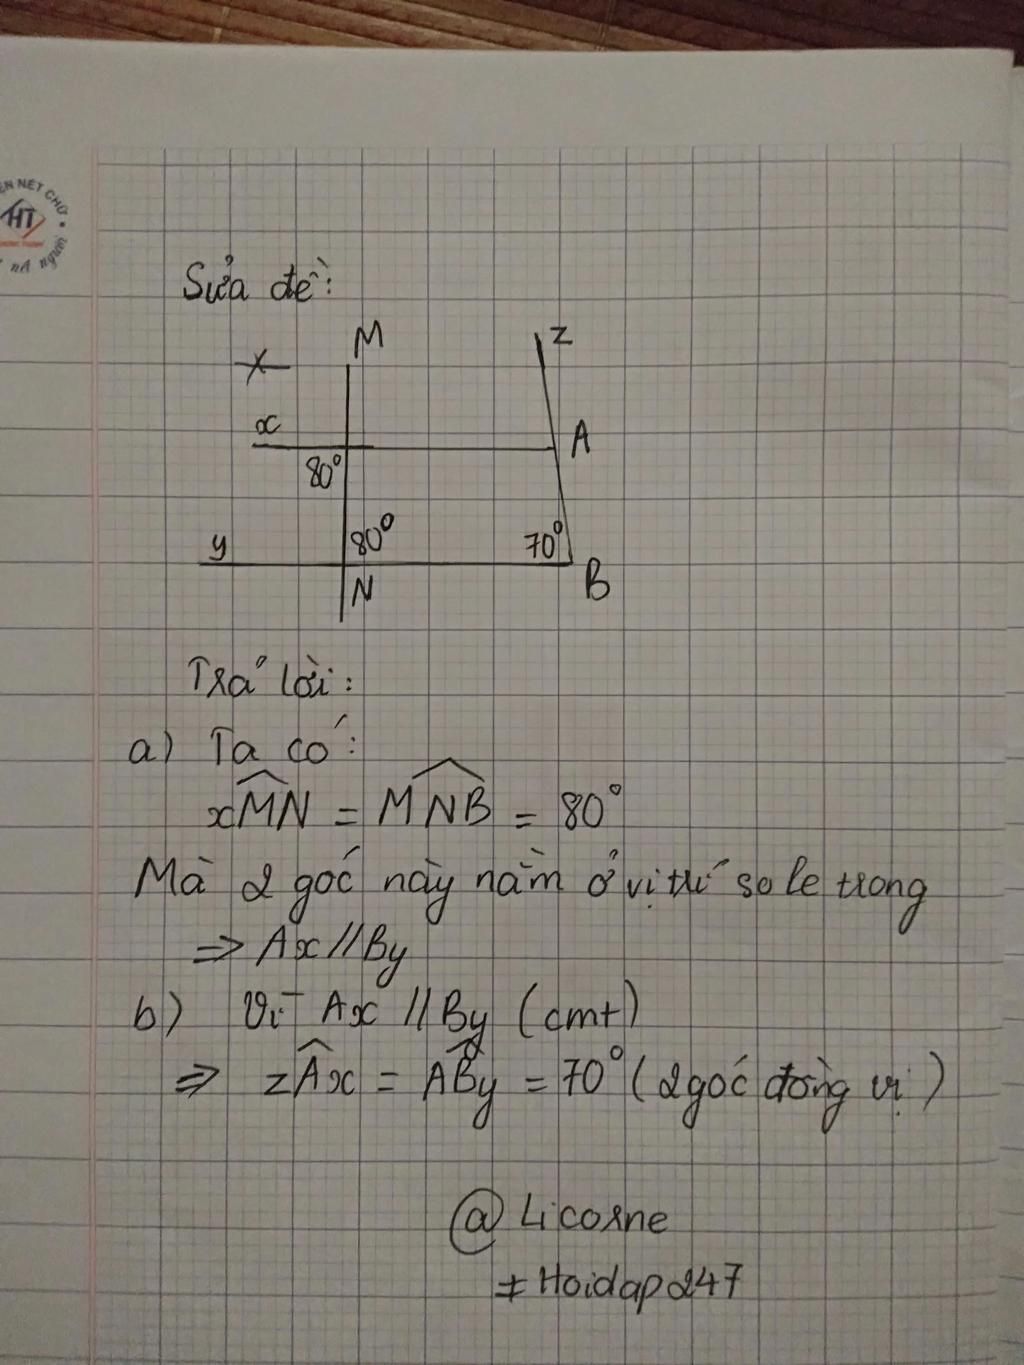 ÈN NÉT CHỮ
HT
nA người
Sửa đề:
M
z
x
A
80°
80°
70°
y
N
B
Trả lời:
a) Ta có:
xMN = MNB = 80°
Mà 2 góc này nằm ở vị trí so le trong
=> Ax//By
b) Vì Ax // By (cmt)
=> zAx = ABy = 70° (2 góc đồng vị)
@ Licorne
# Hoidap247